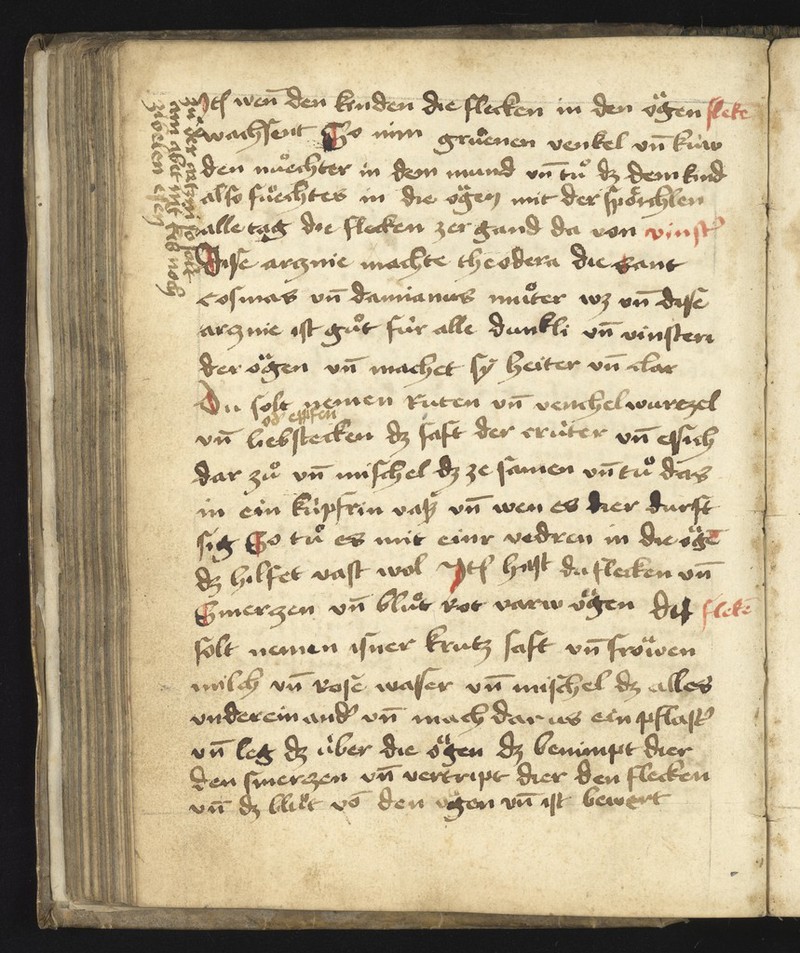 Itē wen̄ den kinden die flecken in den oͤgen fleke
wachsent So nim gruͤenen venkel vn̄ küw
den nuͤechter in dem mund vn̄ tuͦ dz dem kind
also fuͤechtes in die oͤgen mit der spoͤrchlen
alle tag die flecken zergand da von vinst͛
Dise arznie machte theodera die sant
cosmas vn̄ damianus muͦter wz vn̄ dise
arznie ist guͦt für alle dunkli vn̄ vinsteri
der oͤgen vn̄ machet sy heiter vn̄ clar
Du solt nemen Ruten vn̄ venchel wurtzel
od͛ epffen
vn̄ liebstecken dz saft der crüter vn̄ essich
dar zuͦ vn̄ mischel dz ze samen vn̄ tuͦ das
in ein küpfrin vaß vn̄ wen es dier durft
sig So tuͦ es mit einr vedren in die oͤgē
dz hilfet vast wol Itē hast du flecken vn̄
Smerzen vn̄ bluͦt rot varw oͤgen du fleke
solt nemen isner krutz saft vn̄ froͤwen
milch vn̄ rose waser vn̄ mischel dz alles
vndereinand͛ vn̄ mach dar us ein pflast͛
vn̄ leg dz über die oͤgen dz benimpt dier
den smerzen vn̄ vertript dier den flecken
vn̄ dz bluͦt vō den ogen vn̄ ist bewert